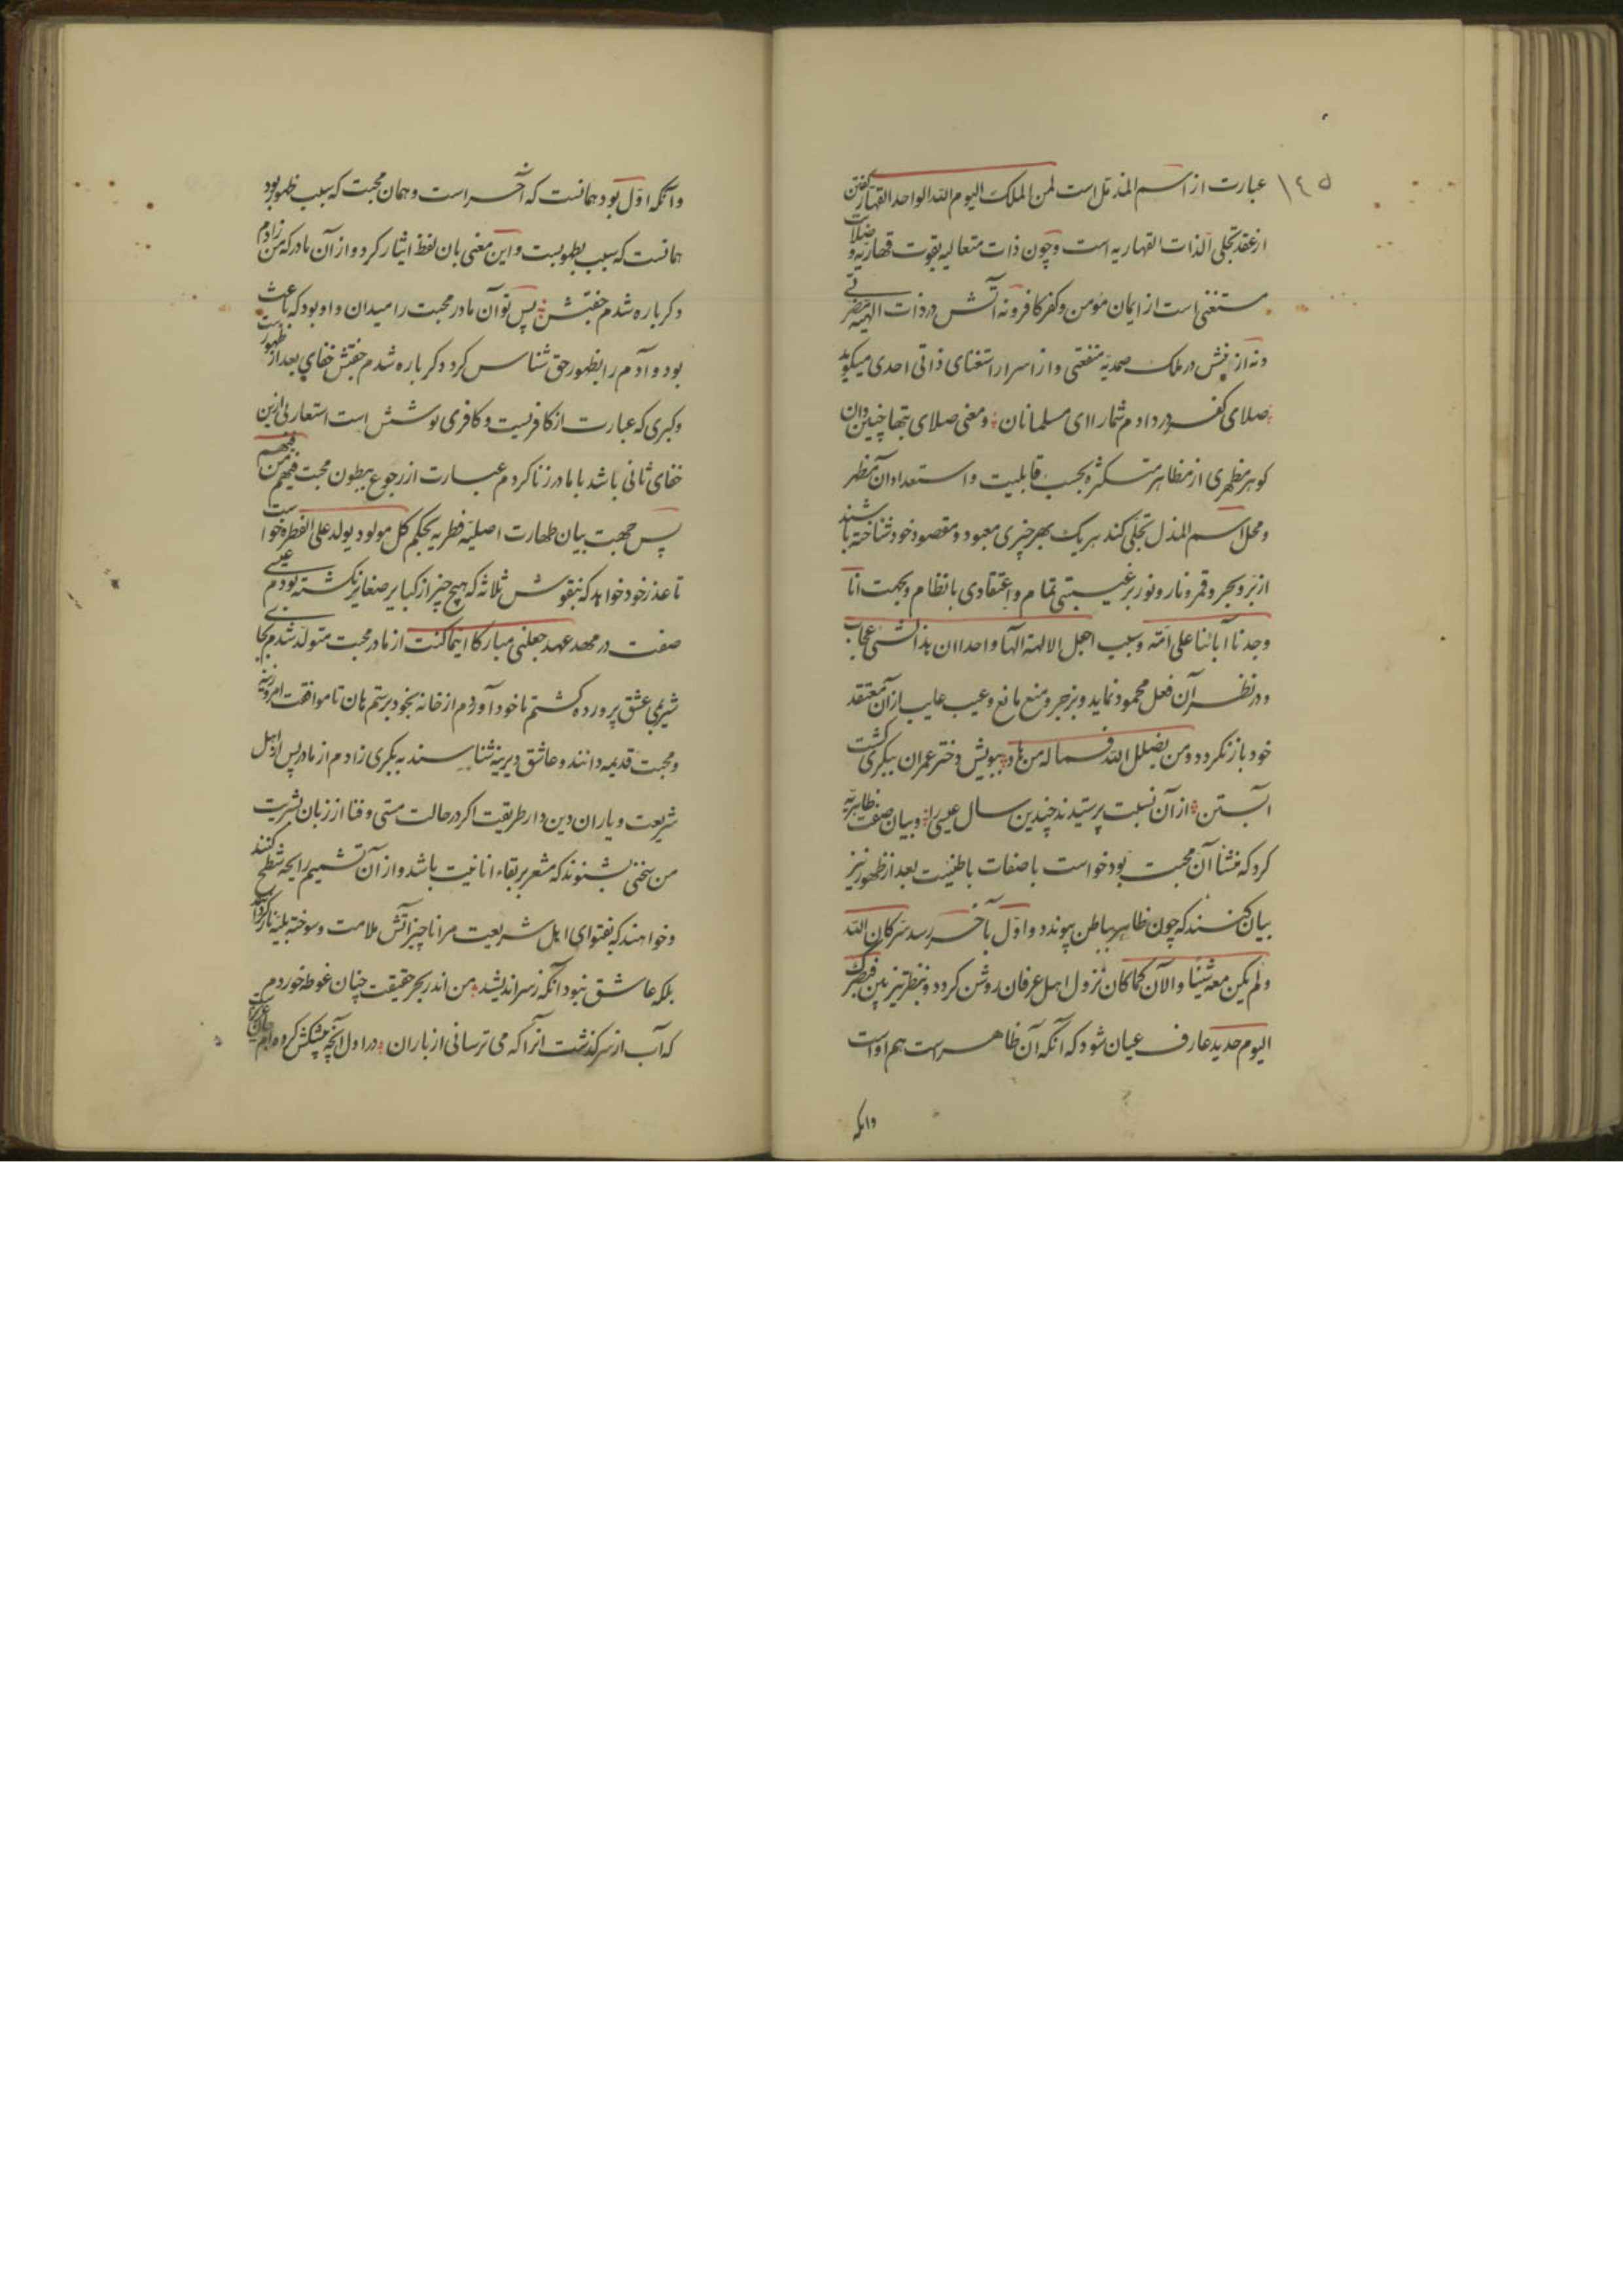 ١٤٥
عبارت از اسم المذل است لمن الملک الیوم لله الواحد القهار گفتن
از عقد تجلی الذات القهاریه است و چون ذات متعالیه بقوت قهاریه و
مستغنی است از ایمان مومن و کفر کافر و نه آتش در ذات الهیه مضرتی
و نه از در ملک صمدیه منفعتی و از اسرار استغنای ذاتی احدی میکوید
صلای کفر در دادم شمارا ای مسلمانان و معنی صلای بتها چنین دان
کو هر مظهری از مظاهر متکثره بحسب قابلیت و استعداد آن مظهر
و محل اسم المذل تجلی کند هر یک بهر چیزی معبود و مقصود خود شناخته باشند
از بر و بحر و قمر و نار و نور برغبتی تمام و اعتقادی بانظام و بجهت انا
وجدنا آبائنا علی امة و سبب اجعل الالهة الها واحدا ان هذا لشی عجاب
و در نظر آن فعل محمود نماید و بزجر و منع مانع و عیب عایب از آن معتقد
خود باز نکردد و من یضلل الله فما له من هاد ببویش دختر عمران ببکری کشت
آبستن از آن نسبت پرستیدند چندین سال عیسی را و بیان صفت ظاهریه
کرد که منشا آن محبت بود خواست با صفات باطنیت بعد از ظهور نیز
بیان کند که چون ظاهر بباطن پیوندد و اول بآخر رسد سر کان الله
و لم یکن معه شیئا و الآن کما کان نزول اهل عرفان روشن کردد و بنظر تیزبین فبصرک
الیوم حدید عارف عیان شود که آنکه آن ظاهر است هم اوست
وانکه
وانکه اول بود همانست که آخر است و همان محبت که سبب ظهور بود
همانست که سبب بطونست و این معنی بآن لفظ ایثار کرد و از آن مادر که من زادم
دکر باره شدم جفتش پس تو آن مادر محبت را میدان و او بود که باعث
بود و آدم را بظهور حق شناس کرد و دکر باره شدم جفتش خفای بعد از ظهورست
و کبری که عبارت از کافریست و کافری پوشش است استعارتی ازین
خفای ثانی باشد با مادر زنا کردم عبارت از رجوع ببطون محبت فیهم من فهم
پس جهت بیان طهارت اصلیه فطریه بحکم کل مولود یولد علی الفطره خواست
تا عذر خود خواهد که بنقوش ثلاثه که هیچ چیز از کبایر صغایر نکشته بودم عیسی
صفت در مهد عهد جعلنی مبارکا اینما کنت از مادر محبت متولد شدم
شیر عشق پرورده کشتم تا خود آوردم از خانه بخود برستم هان تا موافقت امروزینه
و محبت قدیمه دانند و عاشق دیرینه شناسند به بکری زادم از مادر پس اهل
شریعت و یاران دین دار طریقت اکر در حالت مستی و فنا از زبان بشریت
من سخنی بشنوند که مشعر بر بقاء انانیت باشد و از آن تشمیم رایحه شطح کنند
و خواهند که بفتوای اهل شریعت مرا ناچیز آتش ملامت و سوخته
بلکه عاشق نبود آنکه ز سر اندیشد من اندر بحر حقیقت چنان غوطه خوردم
که آب از سر کذشت آنرا که می ترسانی از باران در اول آنچه پیشکش کرده ام